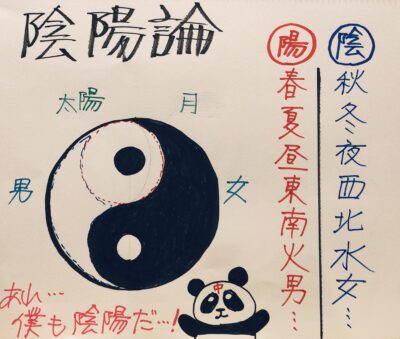 陰陽論
太陽
月
男
女
陽
春夏昼東南火男…
陰
秋冬夜西北水女…
あれ…
僕も陰陽だ…!
中